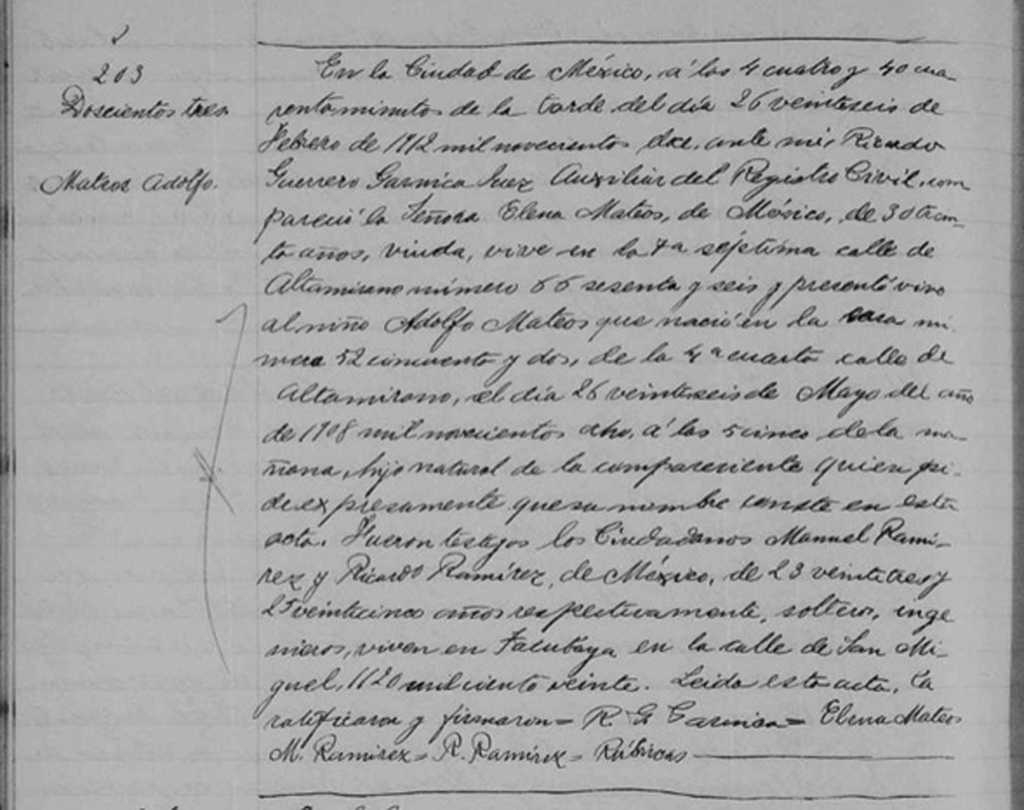 203
Doscientos tres
Mateos Adolfo.
En la Ciudad de México, á las 4 cuatro y 40 cua-
renta minutos de la tarde del día 26 veintiseis de
Febrero de 1912 mil novecientos doce, ante mí, Ricardo
Guerrero Garnica Juez Auxiliar del Registro Civil, com
pareció la Señora Elena Mateos, de México, de 30 trein-
ta años, viuda, vive en la 7a séptima calle de
Altamirano número 66 sesenta y seis y presentó vivo
al niño Adolfo Mateos que nació en la casa nú
mero 52 cincuenta y dos, de la 4a cuarta calle de
Altamirano, el día 26 veintiseis de Mayo del año
de 1908 mil novecientos ocho, á las 5 cinco de la ma-
ñana, hijo natural de la compareciente quien pi-
de expresamente que su nombre conste en esta
acta. Fueron testigos los Ciudadanos Manuel Rami-
rez y Ricardo Ramírez, de México, de 23 veintitres y
25 veinticinco años respectivamente, solteros, inge
nieros, viven en Tacubaya en la calle de San Mi-
guel, 1120 mil ciento veinte. Leida esta acta, la
ratificaron y firmaron = R. G. Garnica = Elena Mateos
M. Ramirez = R. Ramírez = Rúbricas